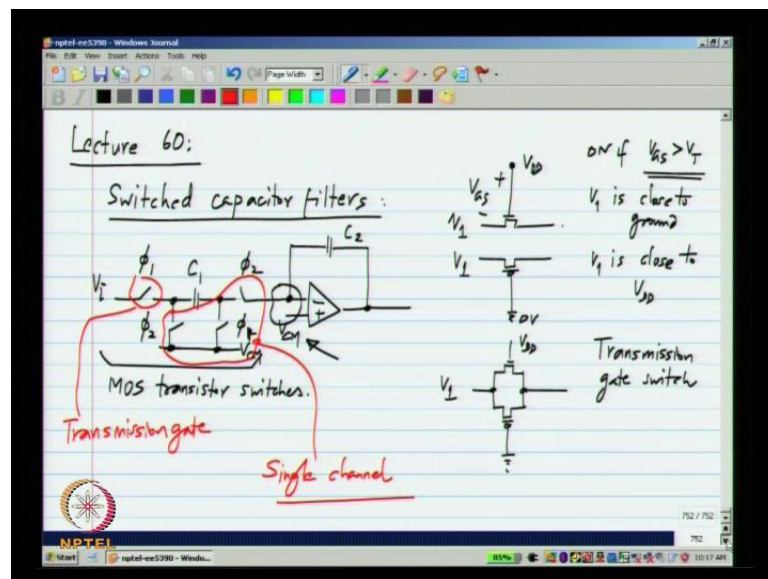 nptel-ee5390 - Windows Journal
File Edit View Insert Actions Tools Help
Page Width
B I
Lecture 60:
Switched capacitor filters :
Vi
ϕ1
C1
ϕ2
C2
ϕ2
ϕ1
VCM
VCM
MOS transistor switches.
Transmission gate
Single channel
VDD
VGS
+
-
V1
V1
0V
VDD
V1
ON if VGS > VT
V1 is close to
ground
V1 is close to
VDD
Transmission
gate switch
NPTEL
752 / 752
752
Start
nptel-ee5390 - Windo...
85%
10:17 AM